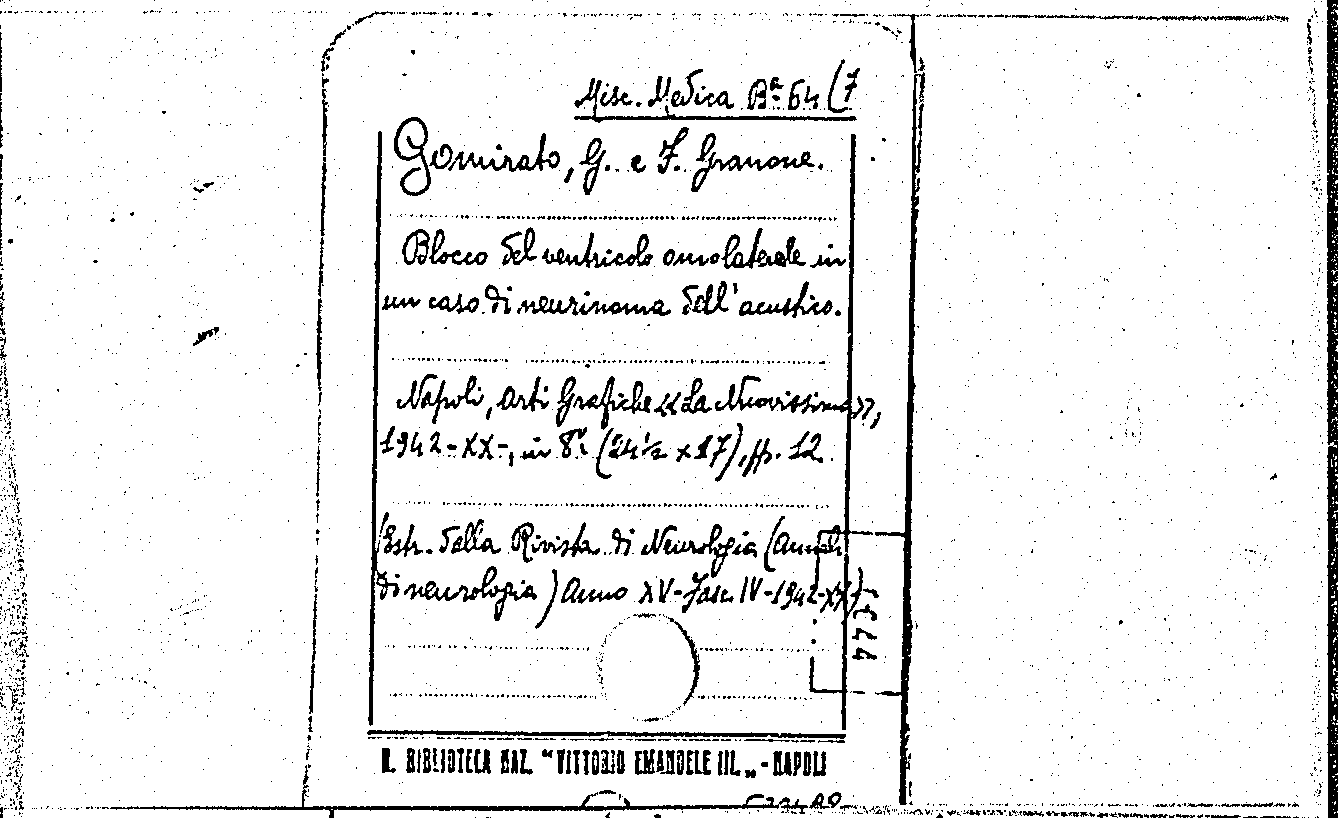 Misc. Medica Bª 64 (7
Gomirato, G. e F. Granone.
Blocco del ventricolo omolaterale in
un caso di neurinoma dell'acustico.
Napoli, Arti Grafiche «La Nuovissima»,
1942-XX-, in 8º (24½ x 17), pp. 12.
(Estr. dalla Rivista di Neurologia (Annali
di neurologia) Anno XV-Fasc. IV-1942-XX)
R. BIBLIOTECA NAZ. "VITTORIO EMANUELE III.„ - NAPOLI